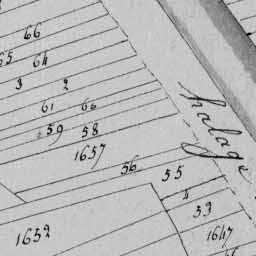 66
65 64
3 2
61 60
59 58
1657
56
55
4
53
1652
1647
halage